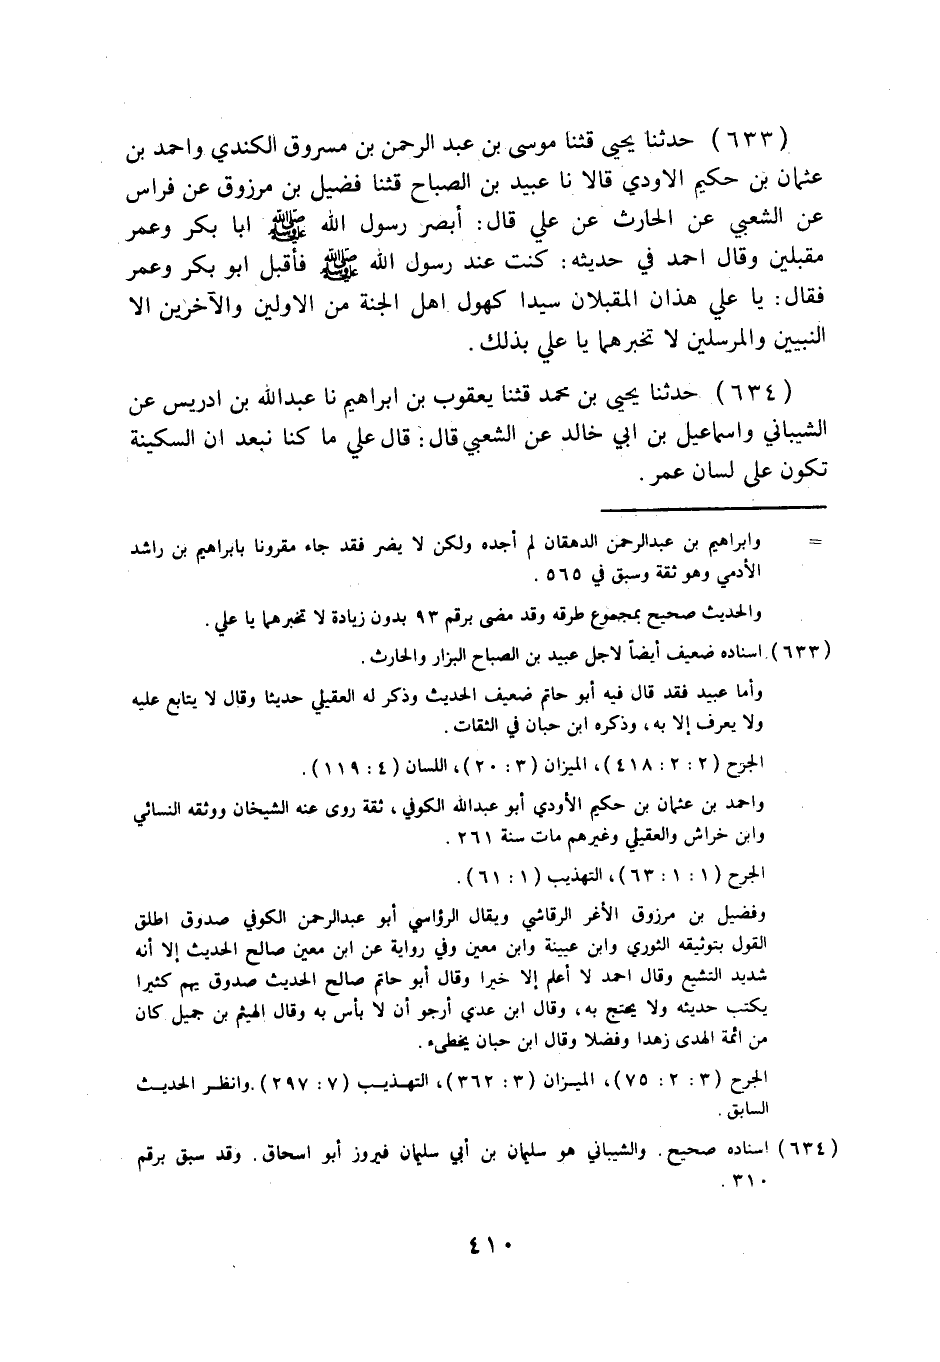 (٦٣٣) حدثنا يحيى قثنا موسى بن عبد الرحمن بن مسروق الكندي واحمد بن
عثمان بن حكيم الاودي قالا نا عبيد بن الصباح قثنا فضيل بن مرزوق عن فراس
عن الشعبي عن الحارث عن علي قال: أبصر رسول الله ﷺ ابا بكر وعمر
مقبلين وقال احمد في حديثه: كنت عند رسول الله ﷺ فأقبل ابو بكر وعمر
فقال: يا علي هذان المقبلان سيدا كهول اهل الجنة من الاولين والآخرين الا
النبيين والمرسلين لا تخبرهما يا علي بذلك.
(٦٣٤) حدثنا يحيى بن محمد قثنا يعقوب بن ابراهيم نا عبدالله بن ادريس عن
الشيباني واسماعيل بن ابي خالد عن الشعبي قال: قال علي ما كنا نبعد ان السكينة
تكون على لسان عمر.
= وابراهيم بن عبدالرحمن الدهقان لم أجده ولكن لا يضر فقد جاء مقرونا بابراهيم بن راشد
الأدمي وهو ثقة وسبق في ٥٦٥.
والحديث صحيح بمجموع طرقه وقد مضى برقم ٩٣ بدون زيادة لا تخبرهما يا علي.
(٦٣٣) اسناده ضعيف أيضاً لاجل عبيد بن الصباح البزار والحارث.
وأما عبيد فقد قال فيه أبو حاتم ضعيف الحديث وذكر له العقيلي حديثا وقال لا يتابع عليه
ولا يعرف إلا به، وذكره ابن حبان في الثقات.
الجرح (٢: ٢: ٤١٨)، الميزان (٣: ٢٠)، اللسان (٤: ١١٩).
واحمد بن عثمان بن حكيم الأودي أبو عبدالله الكوفي، ثقة روى عنه الشيخان ووثقه النسائي
وابن خراش والعقيلي وغيرهم مات سنة ٢٦١.
الجرح (١: ١: ٦٣)، التهذيب (١: ٦١).
وفضيل بن مرزوق الأغر الرقاشي ويقال الرؤاسي أبو عبدالرحمن الكوفي صدوق اطلق
القول بتوثيقه الثوري وابن عيينة وابن معين وفي رواية عن ابن معين صالح الحديث إلا أنه
شديد التشيع وقال احمد لا أعلم إلا خيرا وقال أبو حاتم صالح الحديث صدوق يهم كثيرا
يكتب حديثه ولا يحتج به، وقال ابن عدي أرجو أن لا بأس به وقال الهيثم بن جميل كان
من ائمة الهدى زهدا وفضلا وقال ابن حبان يخطىء.
الجرح (٣: ٢: ٧٥)، الميزان (٣: ٣٦٢)، التهذيب (٧: ٢٩٧). وانظر الحديث
السابق.
(٦٣٤) اسناده صحيح. والشيباني هو سليمان بن أبي سليمان فيروز أبو اسحاق. وقد سبق برقم
٣١٠.
٤١٠